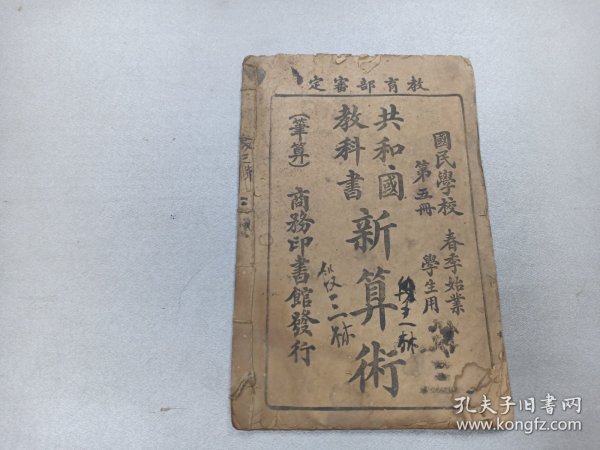 教育部審定
國民學校 春季始業
第五冊 學生用
共和國
教科書
新算術
(筆算) 商務印書館發行
孔夫子旧书网
www.kongfz.com